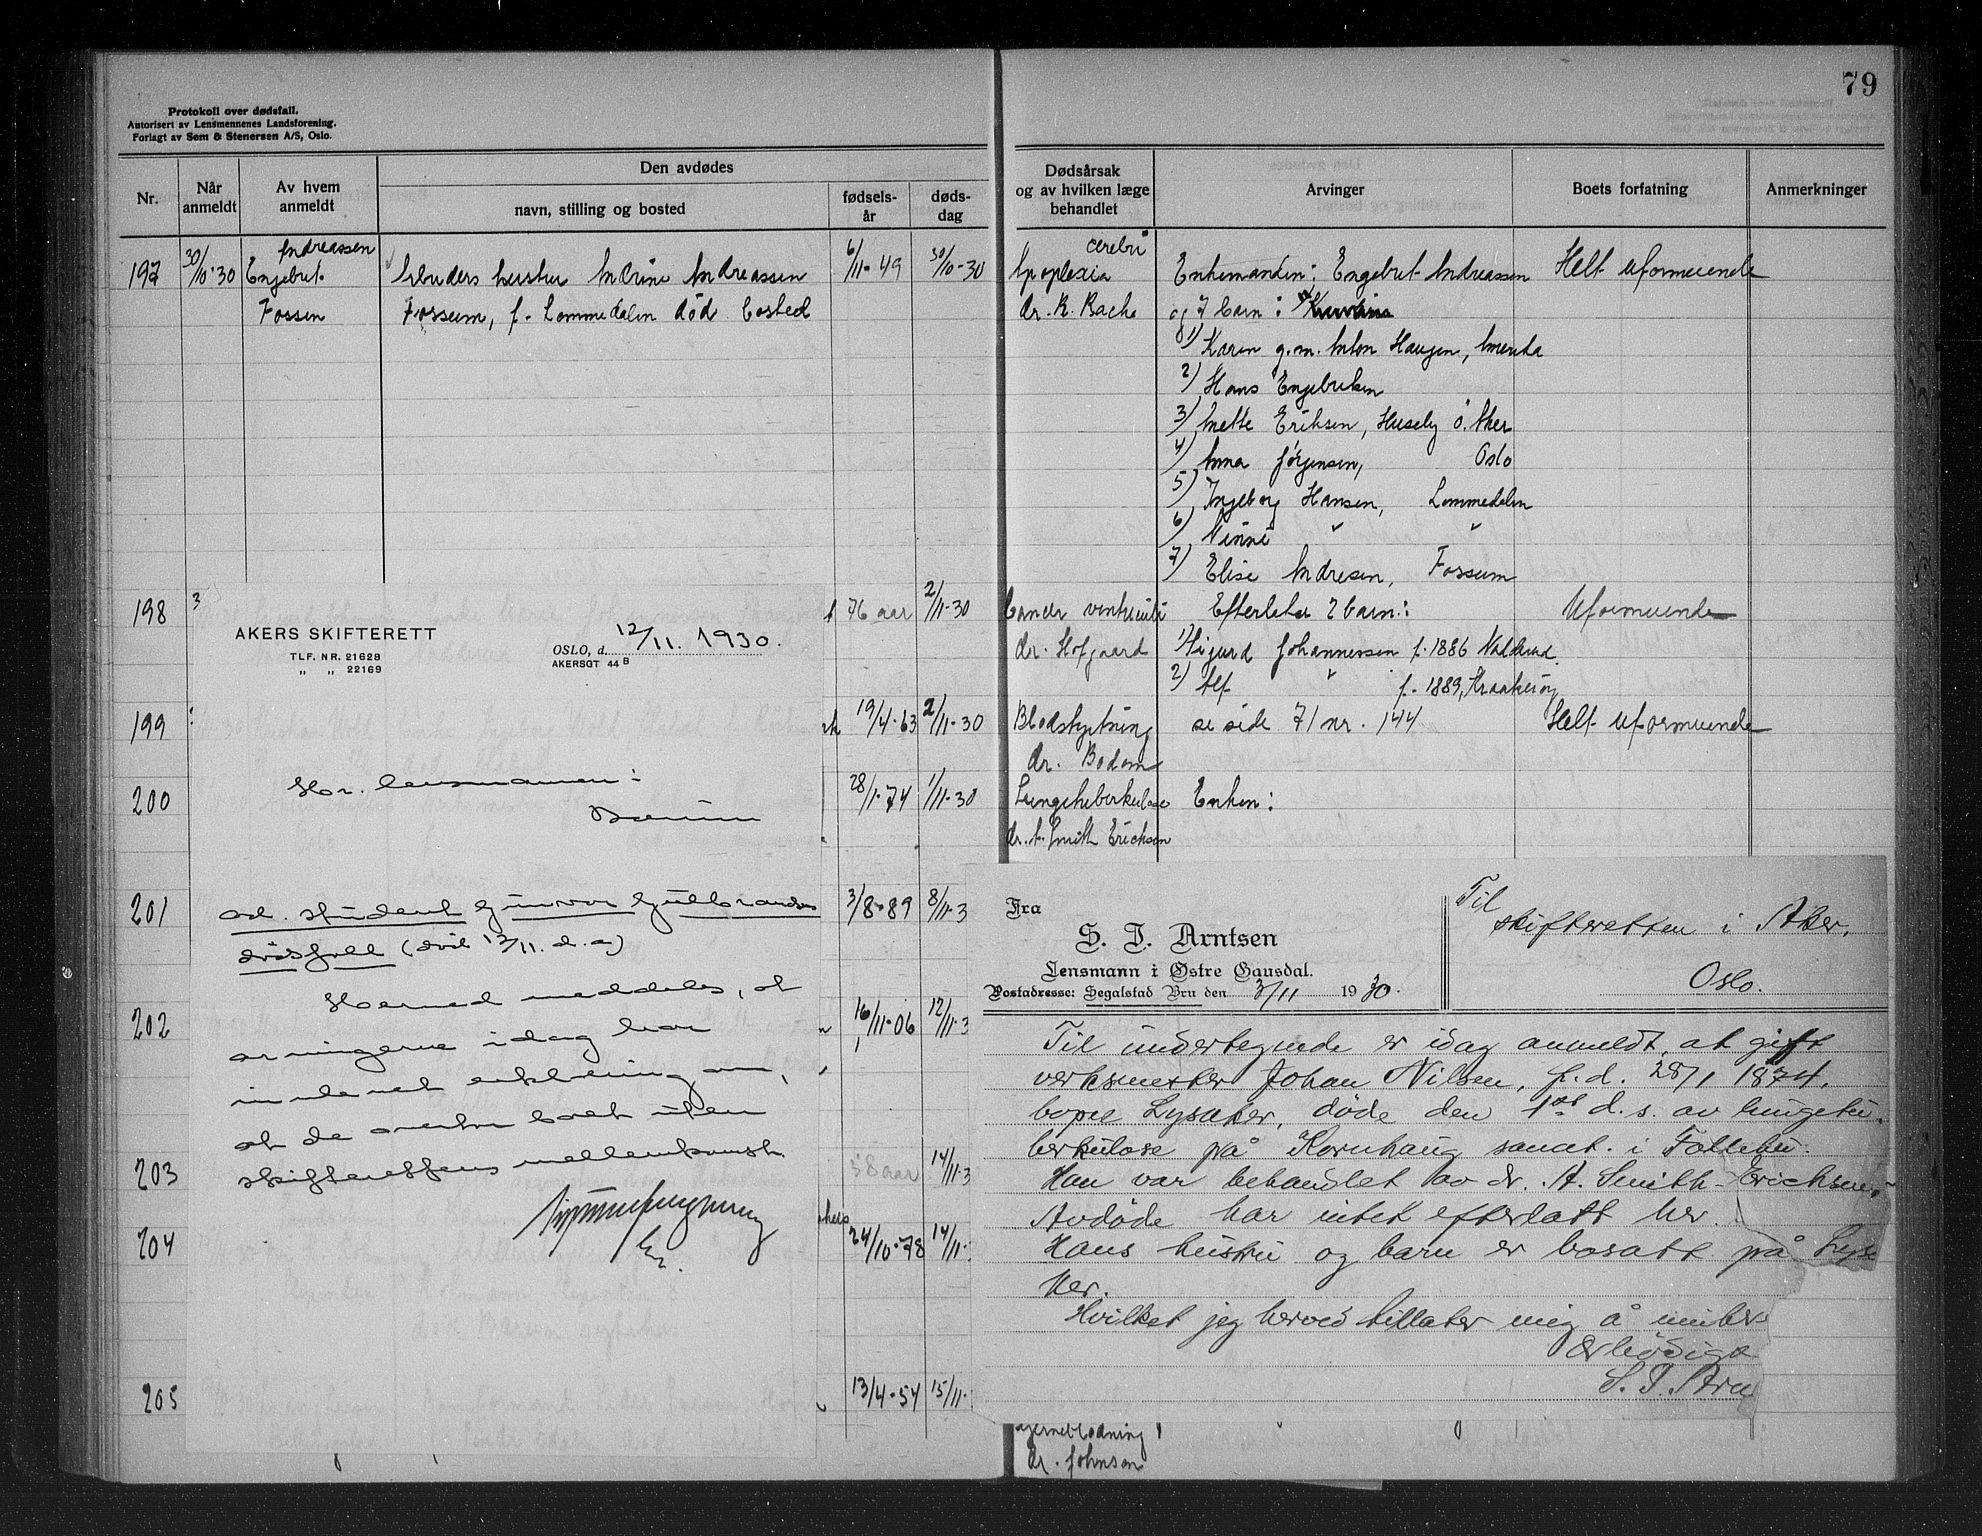 79
Protokoll over dødsfall.
Autorisert av Lensmennenes Landsforening.
Forlagt av Sem & Stenersen A/S, Oslo.
Nr.
Når anmeldt
Av hvem anmeldt
Den avdødes
navn, stilling og bosted
fødsels-år
døds-dag
Dødsårsak og av hvilken læge behandlet
Arvinger
Boets forfatning
Anmerkninger
197 30/10-30 Engebret Andreassen Fossen
Arbeiders hustru Andrine Andreassen
Fossum, f. Lommedalen død bosted
6/11-49 30/10-30
Apoplexia cerebri
dr. R. Bache
Enkemanden: Engebret Andreassen
og 7 barn:
1) Karen g.m. Anton Haugen, Amerika
2) Hans Engebretsen
3) Mette Eriksen, Huseby Ø. Aker
4) Anna Jørgensen, Oslo
5) Ingeborg Hansen, Lommedalen
6) Ninni " "
7) Elise Andresen, Fossum
Helt uformuende
198 3 76 aar 2/11-30
Cancer ventriculi
dr. Hofgaard
Efterlater 2 barn:
1) Sigurd Johannessen f. 1886
2) Alf " f. 1889, Kraakerøy
Uformuende
199 19/4-63 2/11-30
Blodstyrtning
dr. Bodom
se side 71 nr. 144
Helt uformuende
200 28/1-74 1/11-30
Lungetuberkulose
dr. A. Smith Erichsen
Enken:
201 3/8-89 8/11-3
202 16/11-06 12/11-3
203 58 aar 14/11-3
204 24/10-78 14/11-
205 13/4-54 15/11-
Hjerneblødning
dr. Johnson
AKERS SKIFTERETT
TLF. NR. 21628
" " 22169
OSLO, d. 12/11. 1930.
AKERSGT 44 B
Hr. lensmannen i
Bærum
ad. student Gunvor Gulbrandsens
dødsfall (død 12/11. d.a)
Herved meddeles, at
arvingerne idag har
innlevert erklæring om,
at de overtar boet uten
skifterettens mellemkomst.
Fra
S. J. Arntsen
Lensmann i Østre Gausdal.
Postadresse: Segalstad Bru den 3/11 1930.
Til
skifteretten i Aker,
Oslo.
Til undertegnede er idag anmeldt, at gift
verksmester Johan Nilsen, f.d. 28/1 1874,
bopel Lysaker, døde den 1ste d.s. av lungetu-
berkulose på Kornhaug sanat. i Follebu.
Han var behandlet av dr. A. Smith-Erichsen.
Avdøde har intet efterlatt her.
Hans hustru og barn er bosatt på Lysa
ker.
Hvilket jeg herved tillater mig å innber
Ærbødigst
S. J. Arn